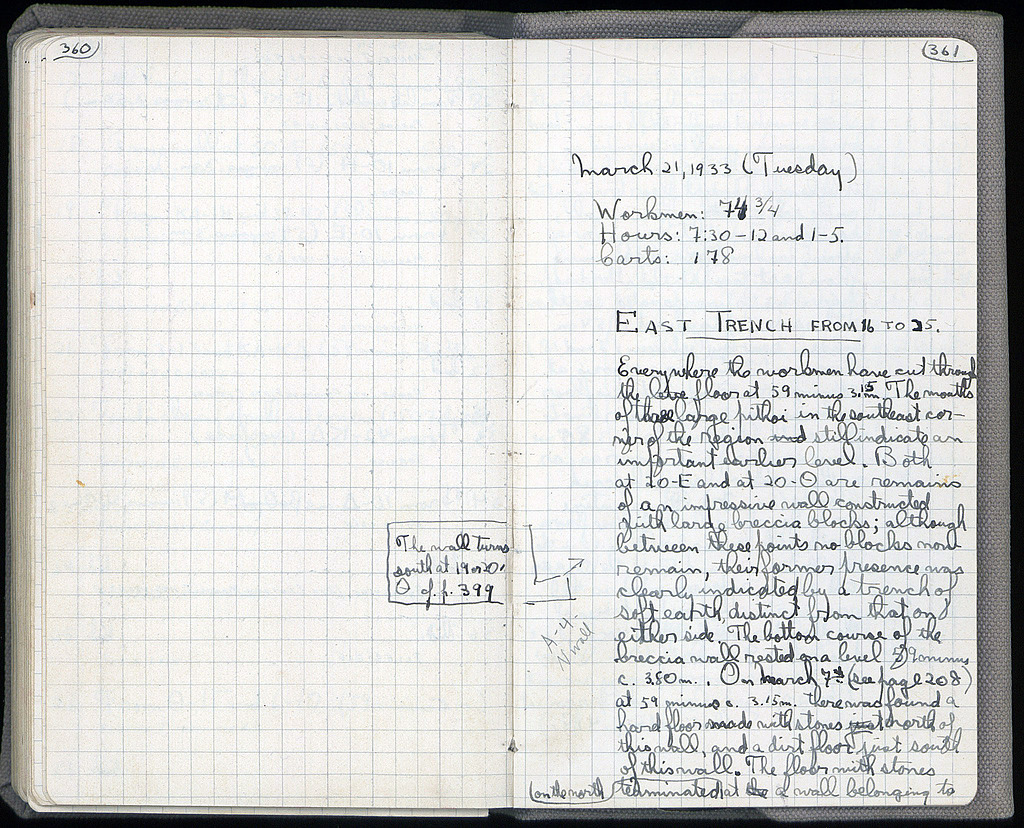 360
The wall turns
south at 19 or 20.
Θ cf. p. 399
361
March 21, 1933 (Tuesday)
Workmen: 74 3/4
Hours: 7:30 – 12 and 1–5.
Carts: 178
EAST TRENCH FROM 16 TO 25.
Everywhere the workmen have cut through
the floor at 59 minus 3.15m. The mouths
of three large pithoi in the southeast cor-
ner of the region still indicate an
important earlier level. Both
at 20-E and at 20-Θ are remains
of an impressive wall constructed
with large breccia blocks; although
between these points no blocks now
remain, their former presence was
clearly indicated by a trench of
soft earth, distinct from that on
either side. The bottom course of the
breccia wall rested on a level 59 minus
c. 3.50 m. . On March 7th (see page 208)
at 59 minus c. 3.15m. there was found a
hard floor made with stones just north of
this wall, and a dirt floor just south
of this wall. The floor with stones
(on the north) terminated at the a wall belonging to
A-4.
N wall